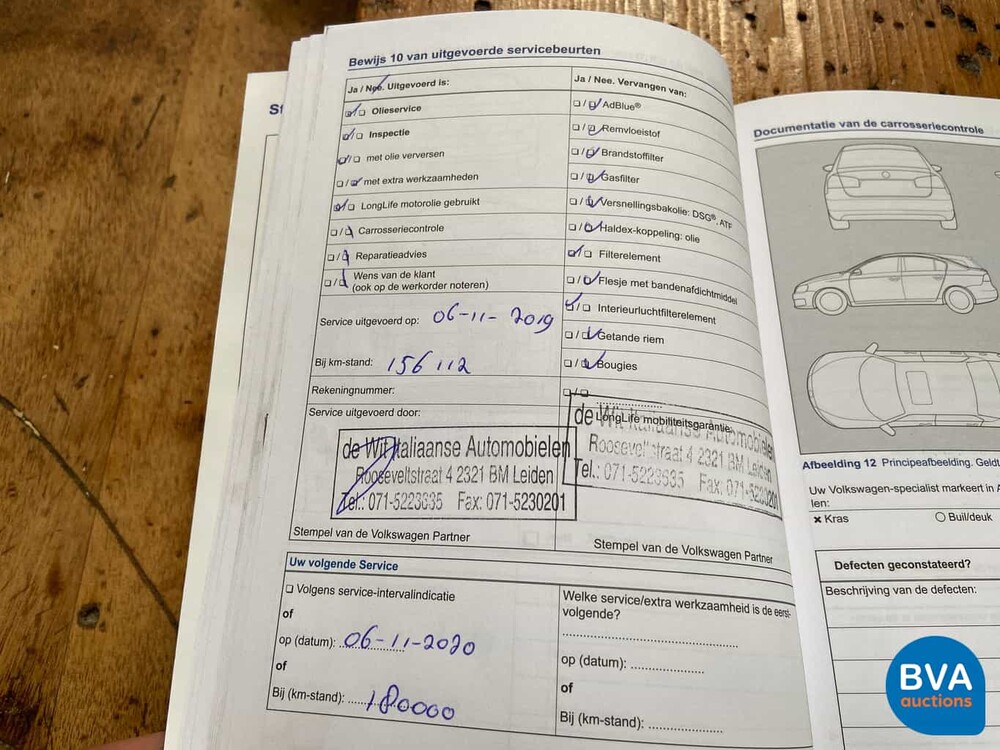 St
Bewijs 10 van uitgevoerde servicebeurten
Ja / Nee. Uitgevoerd is:
Olieservice
Inspectie
met olie verversen
met extra werkzaamheden
LongLife motorolie gebruikt
Carrosseriecontrole
Reparatieadvies
Wens van de klant
(ook op de werkorder noteren)
Service uitgevoerd op: 06-11-2019
Bij km-stand: 156112
Rekeningnummer:
Service uitgevoerd door:
de Wit Italiaanse Automobielen
Rooseveltstraat 4 2321 BM Leiden
Tel.: 071-5223635 Fax: 071-5230201
Stempel van de Volkswagen Partner
Ja / Nee. Vervangen van:
AdBlue®
Remvloeistof
Brandstoffilter
Gasfilter
Versnellingsbakolie: DSG®, ATF
Haldex-koppeling: olie
Filterelement
Flesje met bandenafdichtmiddel
Interieurluchtfilterelement
Getande riem
Bougies
LongLife mobiliteitsgarantie:
de Wit Italiaanse Automobielen
Rooseveltstraat 4 2321 BM Leiden
Tel.: 071-5223635 Fax: 071-5230201
Stempel van de Volkswagen Partner
Uw volgende Service
Volgens service-intervalindicatie
of
op (datum): 06-11-2020
of
Bij (km-stand): 180000
Welke service/extra werkzaamheid is de eerst-
volgende?
op (datum):
of
Bij (km-stand):
Documentatie van de carrosseriecontrole
Afbeelding 12 Principeafbeelding. Geldt
Uw Volkswagen-specialist markeert in A
len:
x Kras
Buil/deuk
Defecten geconstateerd?
Beschrijving van de defecten:
BVA
auctions